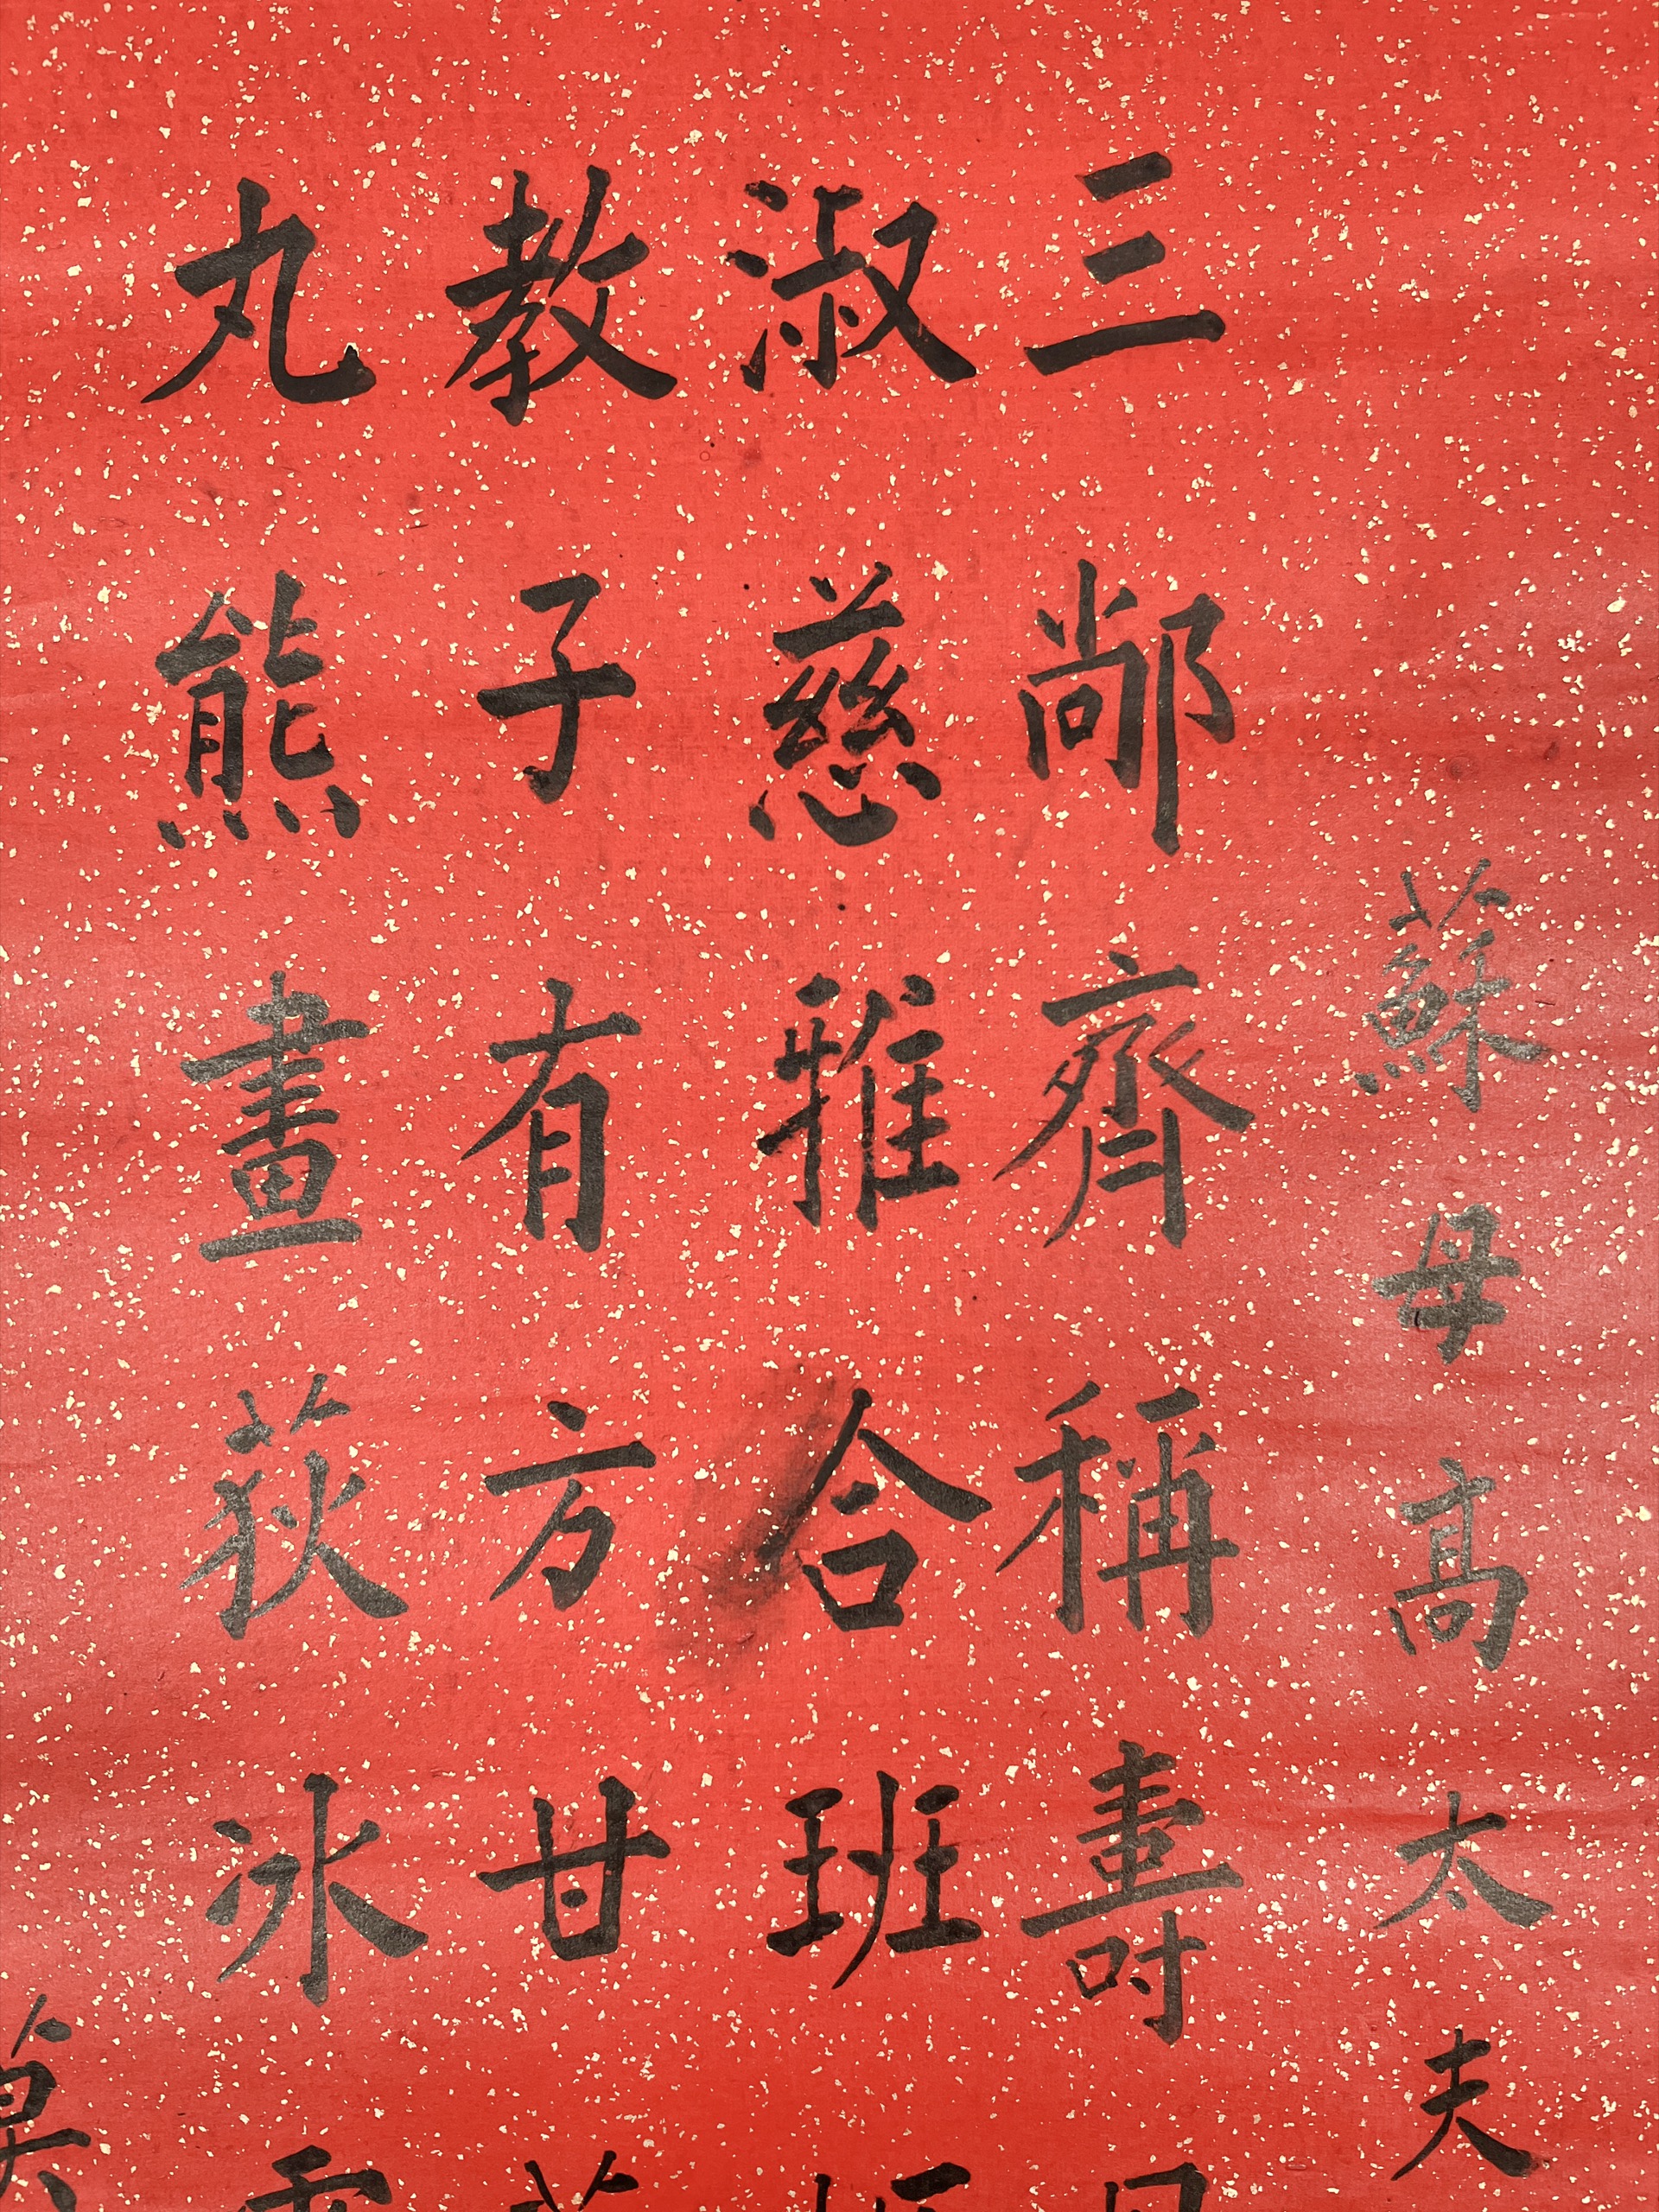 蘇母高太夫
三鄗齊稱壽
淑慈雅合班
教子有方甘
丸熊畫荻冰